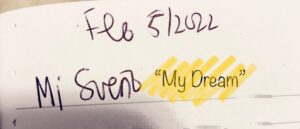 Flo 5/2022
Mi Sveño “My Dream”